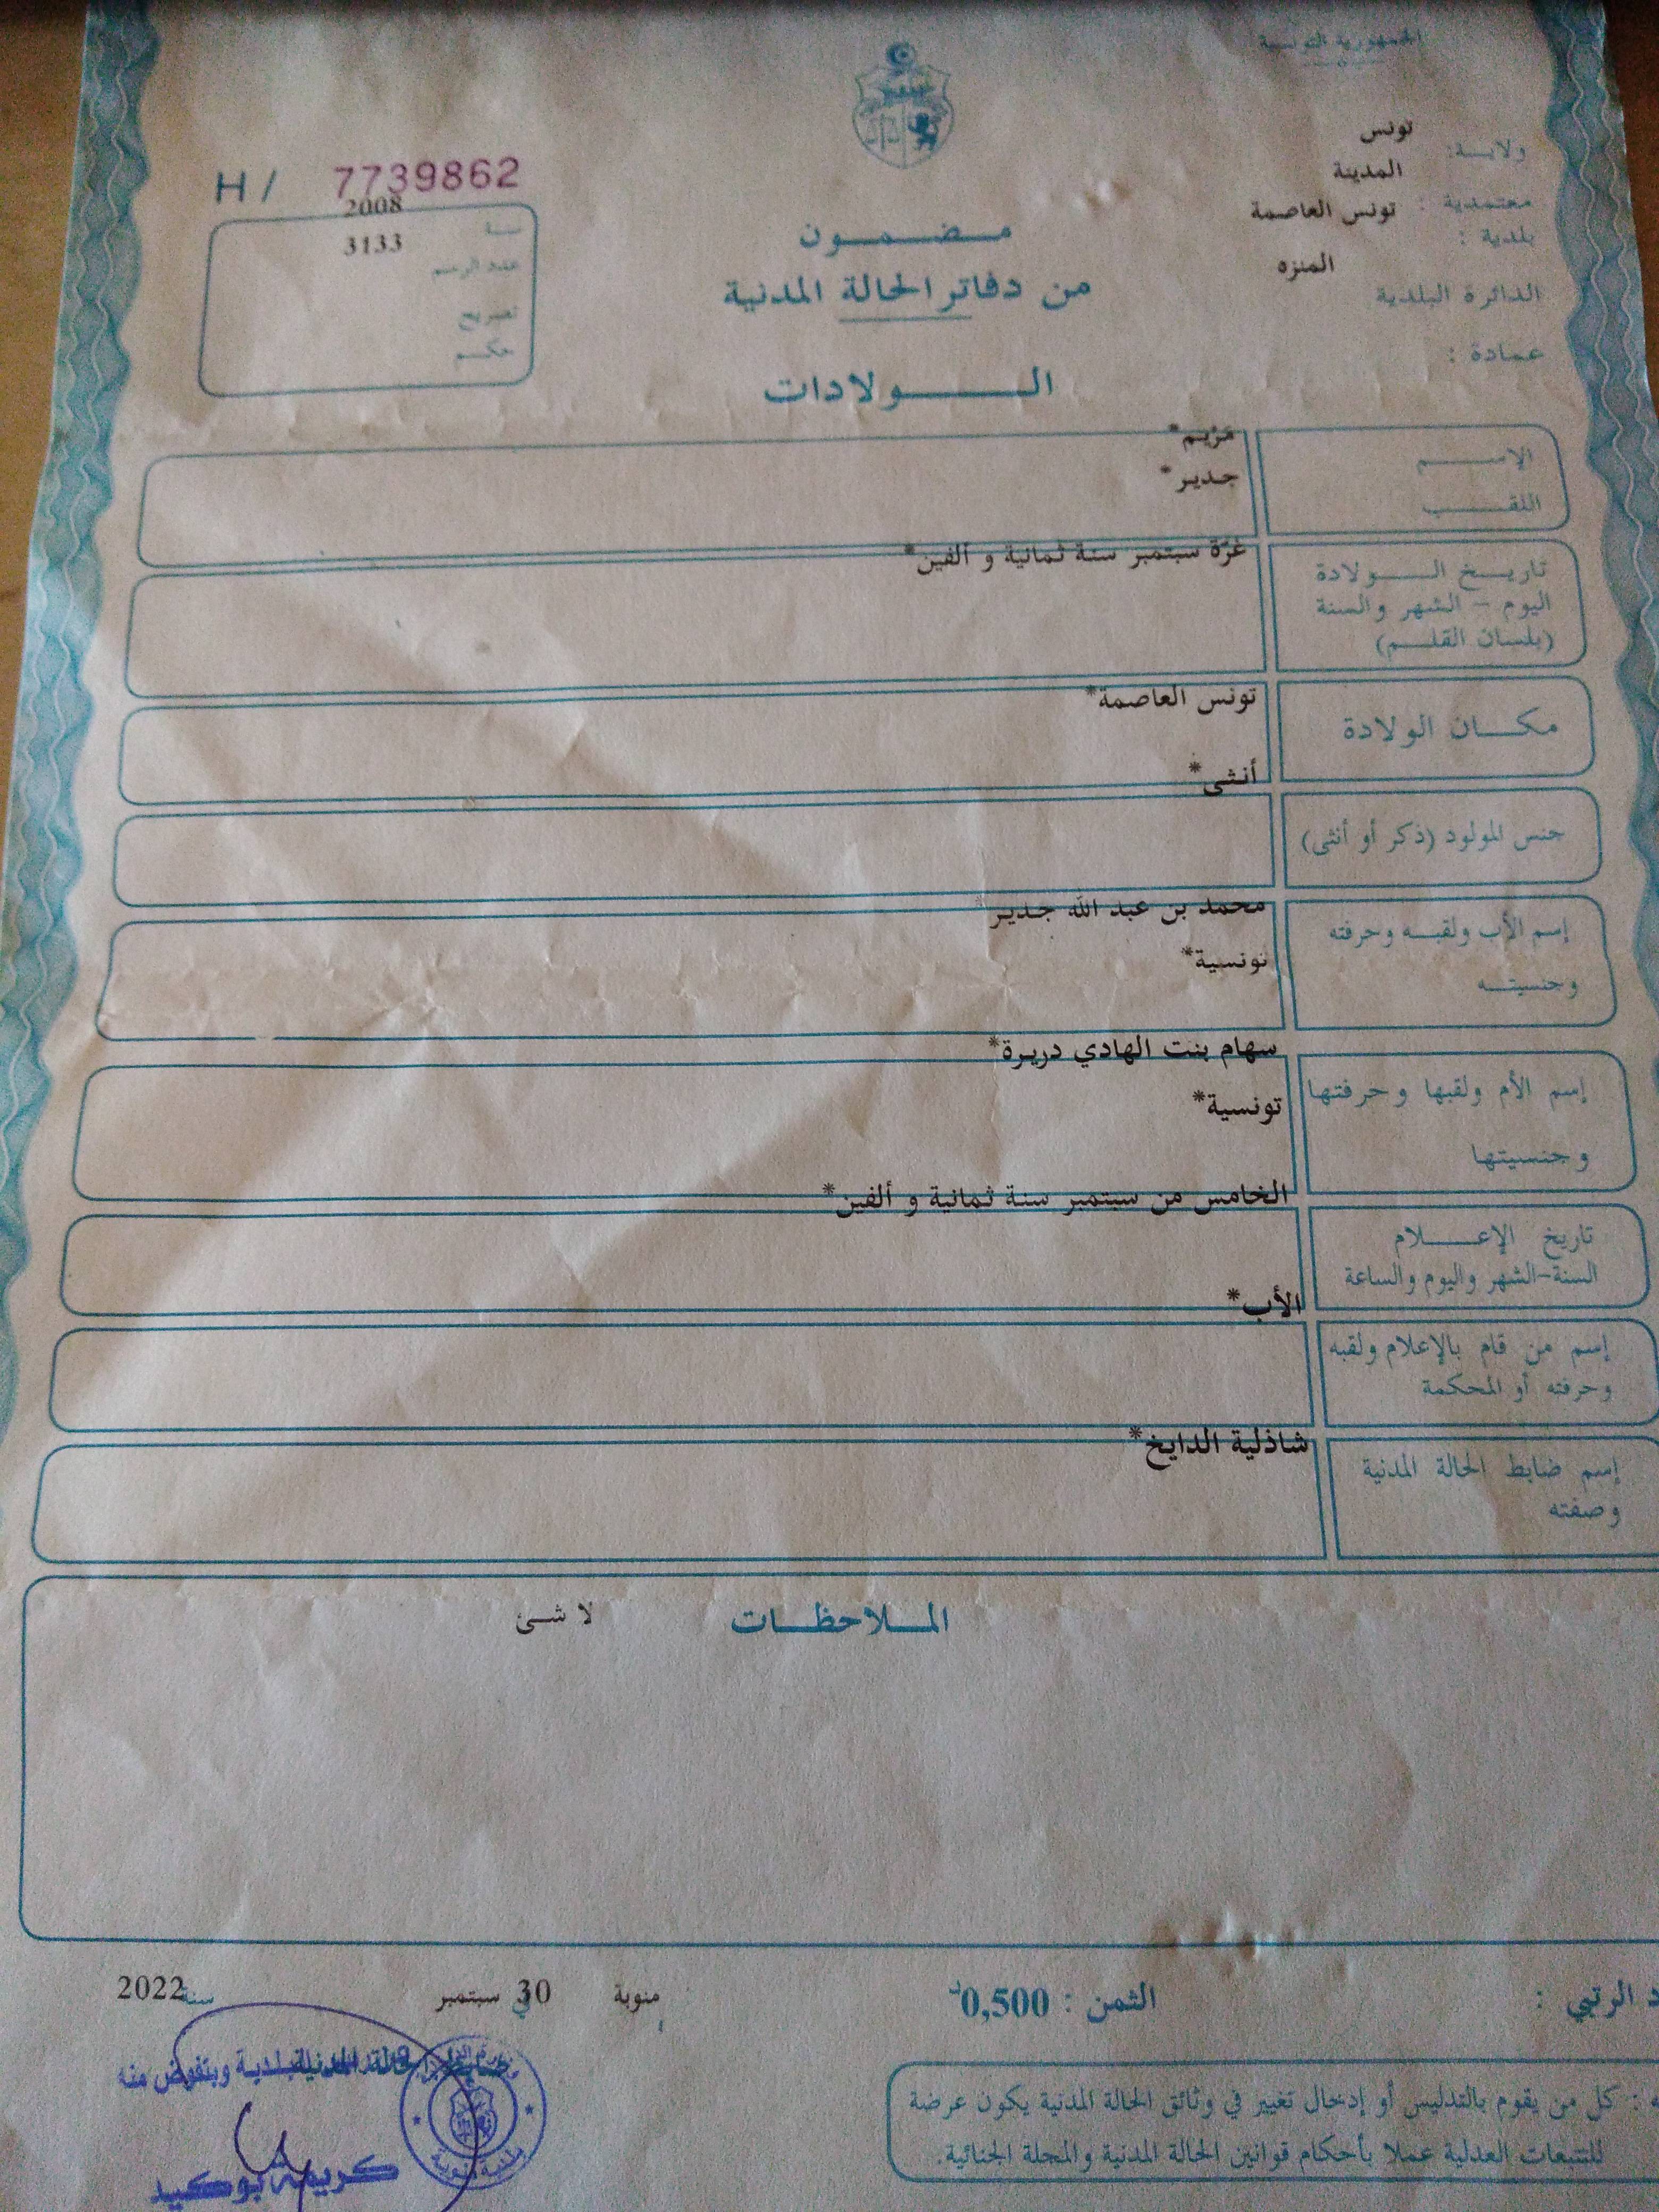 الجمهورية التونسية
ولاية: تونس
معتمدية : المدينة
بلدية : تونس العاصمة
الدائرة البلدية المنزه
عمادة :
H / 7739862
سنة 2008
عدد الرسم 3133
تصريح
حكم
مضمون
من دفاتر الحالة المدنية
الولادات
الاسم مريم*
اللقب جدير*
تاريخ الولادة غرّة سبتمبر سنة ثمانية و ألفين*
اليوم - الشهر والسنة
(بلسان القلم)
مكان الولادة تونس العاصمة*
جنس المولود (ذكر أو أنثى) أنثى*
إسم الأب ولقبه وحرفته محمد بن عبد الله جدير*
وجنسيته تونسية*
إسم الأم ولقبها وحرفتها سهام بنت الهادي دريرة*
وجنسيتها تونسية*
تاريخ الإعلام الخامس من سبتمبر سنة ثمانية و ألفين*
السنة-الشهر واليوم والساعة
إسم من قام بالإعلام ولقبه الأب*
وحرفته أو المحكمة
إسم ضابط الحالة المدنية شاذلية الدايخ*
وصفته
الملاحظات لا شئ
د الرتبي :
الثمن : 0,500د
منوبة في 30 سبتمبر سنة 2022
ضابط الحالة المدنية
وبتفويض منه
كريمة بوكيد
ه : كل من يقوم بالتدليس أو إدخال تغيير في وثائق الحالة المدنية يكون عرضة
للتتبعات العدلية عملا بأحكام قوانين الحالة المدنية والمجلة الجنائية.